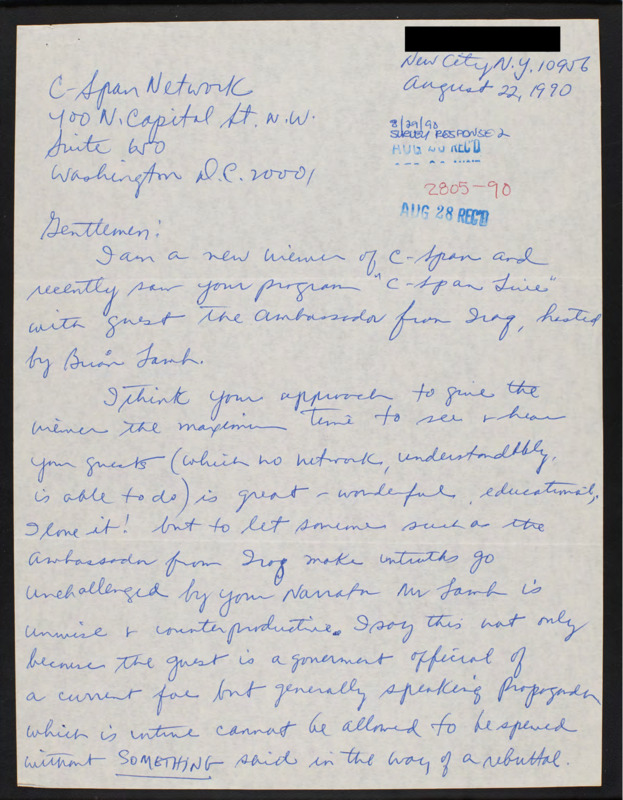 New City N.Y. 10956
August 22, 1990
C-Span Network
400 N. Capital St. N.W.
Suite 650
Washington D.C. 20001
8/29/90
SURVEY RESPONSE 2
AUG 28 REC'D
2805-90
AUG 28 REC'D
Gentlemen:
I am a new viewer of C-Span and
recently saw your program "C-Span Live"
with guest the Ambassador from Iraq, hosted
by Brian Lamb.
I think your approach to give the
viewer the maximum time to see & hear
your guests (which no network, understandably,
is able to do) is great - wonderful, educational,
I love it! but to let someone such as the
Ambassador from Iraq make untruths go
unchallenged by your Narrator Mr Lamb is
unwise & counterproductive. I say this not only
because the guest is a goverment official of
a current foe but generally speaking Propoganda
which is untrue cannot be allowed to be spewed
without SOMETHING said in the way of a rebuttal.